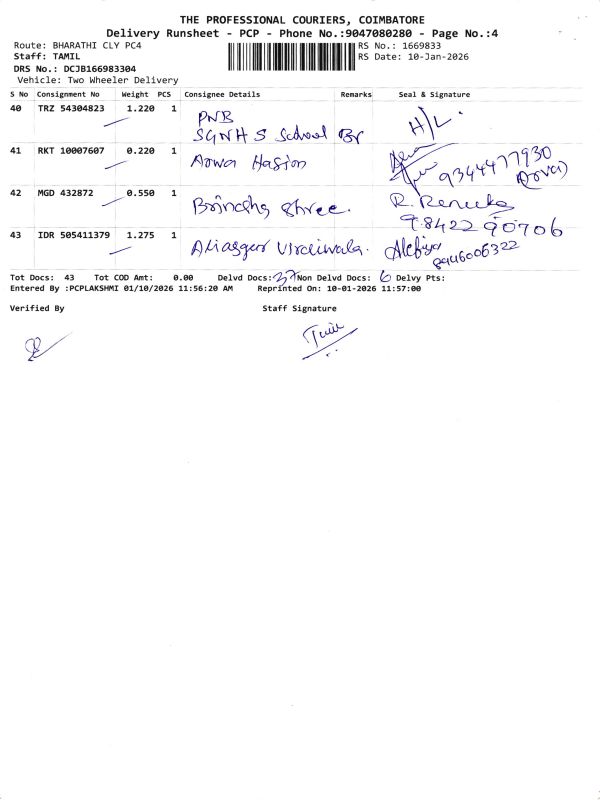 THE PROFESSIONAL COURIERS, COIMBATORE
Delivery Runsheet - PCP - Phone No.:9047080280 - Page No.:4
Route: BHARATHI CLY PC4 RS No.: 1669833
Staff: TAMIL RS Date: 10-Jan-2026
DRS No.: DCJB166983304
Vehicle: Two Wheeler Delivery
S No Consignment No Weight PCS Consignee Details Remarks Seal & Signature
40 TRZ 54304823 1.220 1 PNB H/L.
SGNHS School Br
41 RKT 10007607 0.220 1 Arwa Hasion 9344477930
(Arwa)
42 MGD 432872 0.550 1 Brindha Shree. R. Renuka
98422 90706
43 IDR 505411379 1.275 1 Aliasgar Virdiwala. Alefiya
8946006322
Tot Docs: 43 Tot COD Amt: 0.00 Delvd Docs: 37 Non Delvd Docs: 6 Delvy Pts:
Entered By :PCPLAKSHMI 01/10/2026 11:56:20 AM Reprinted On: 10-01-2026 11:57:00
Verified By Staff Signature